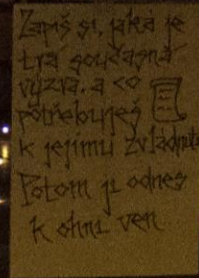 Zapiš si, jaká je
tvá současná
výzva, a co
potřebuješ
k jejímu zvládnutí
Potom ji odnes
k ohni ven